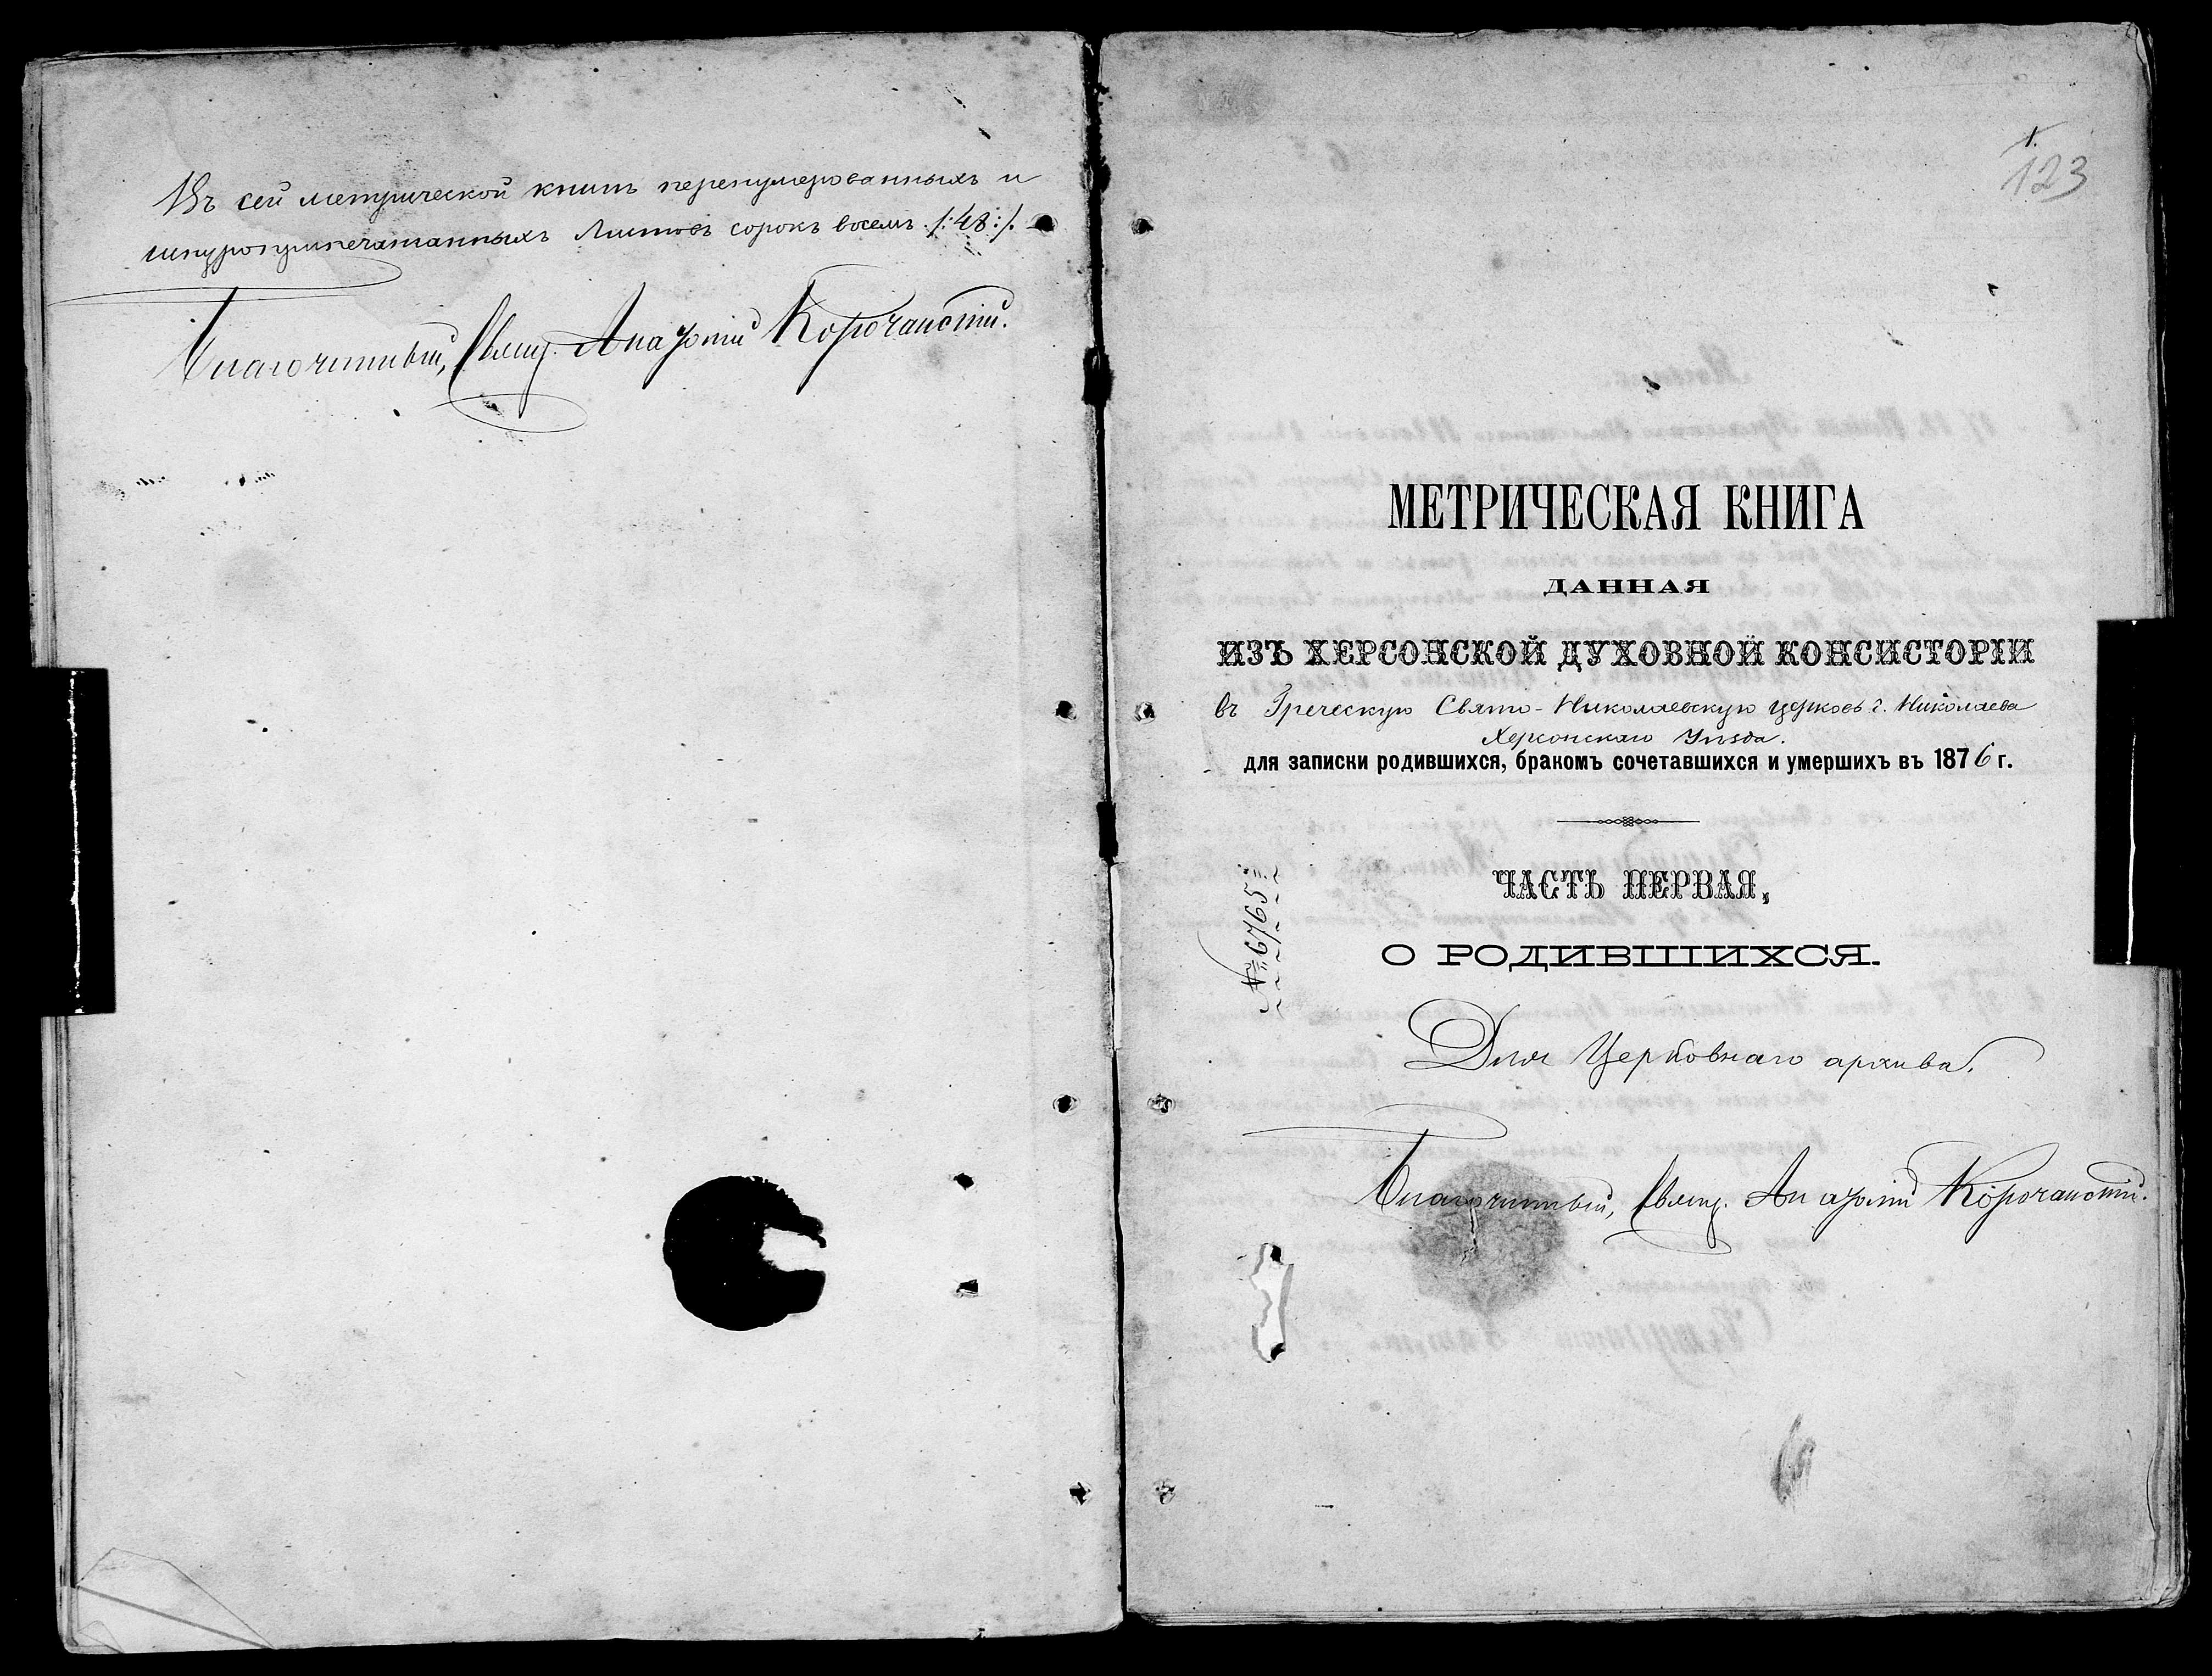 Въ сей метрической книгѣ перенумерованныхъ и
шнуроприпечатанныхъ Листовъ сорокъ восемь /:48:/.
Благочинный, Свящ. Анатолій Корочанскій.
1.
123
МЕТРИЧЕСКАЯ КНИГА
ДАННАЯ
ИЗЪ ХЕРСОНСКОЙ ДУХОВНОЙ КОНСИСТОРІИ
въ Греческую Свято-Николаевскую церковь г. Николаева
Херсонскаго Уѣзда.
для записки родившихся, бракомъ сочетавшихся и умершихъ въ 1876 г.
ЧАСТЬ ПЕРВАЯ,
О РОДИВШИХСЯ.
№ 6765
Для Церковнаго архива.
Благочинный, Свящ. Анатолій Корочанскій.